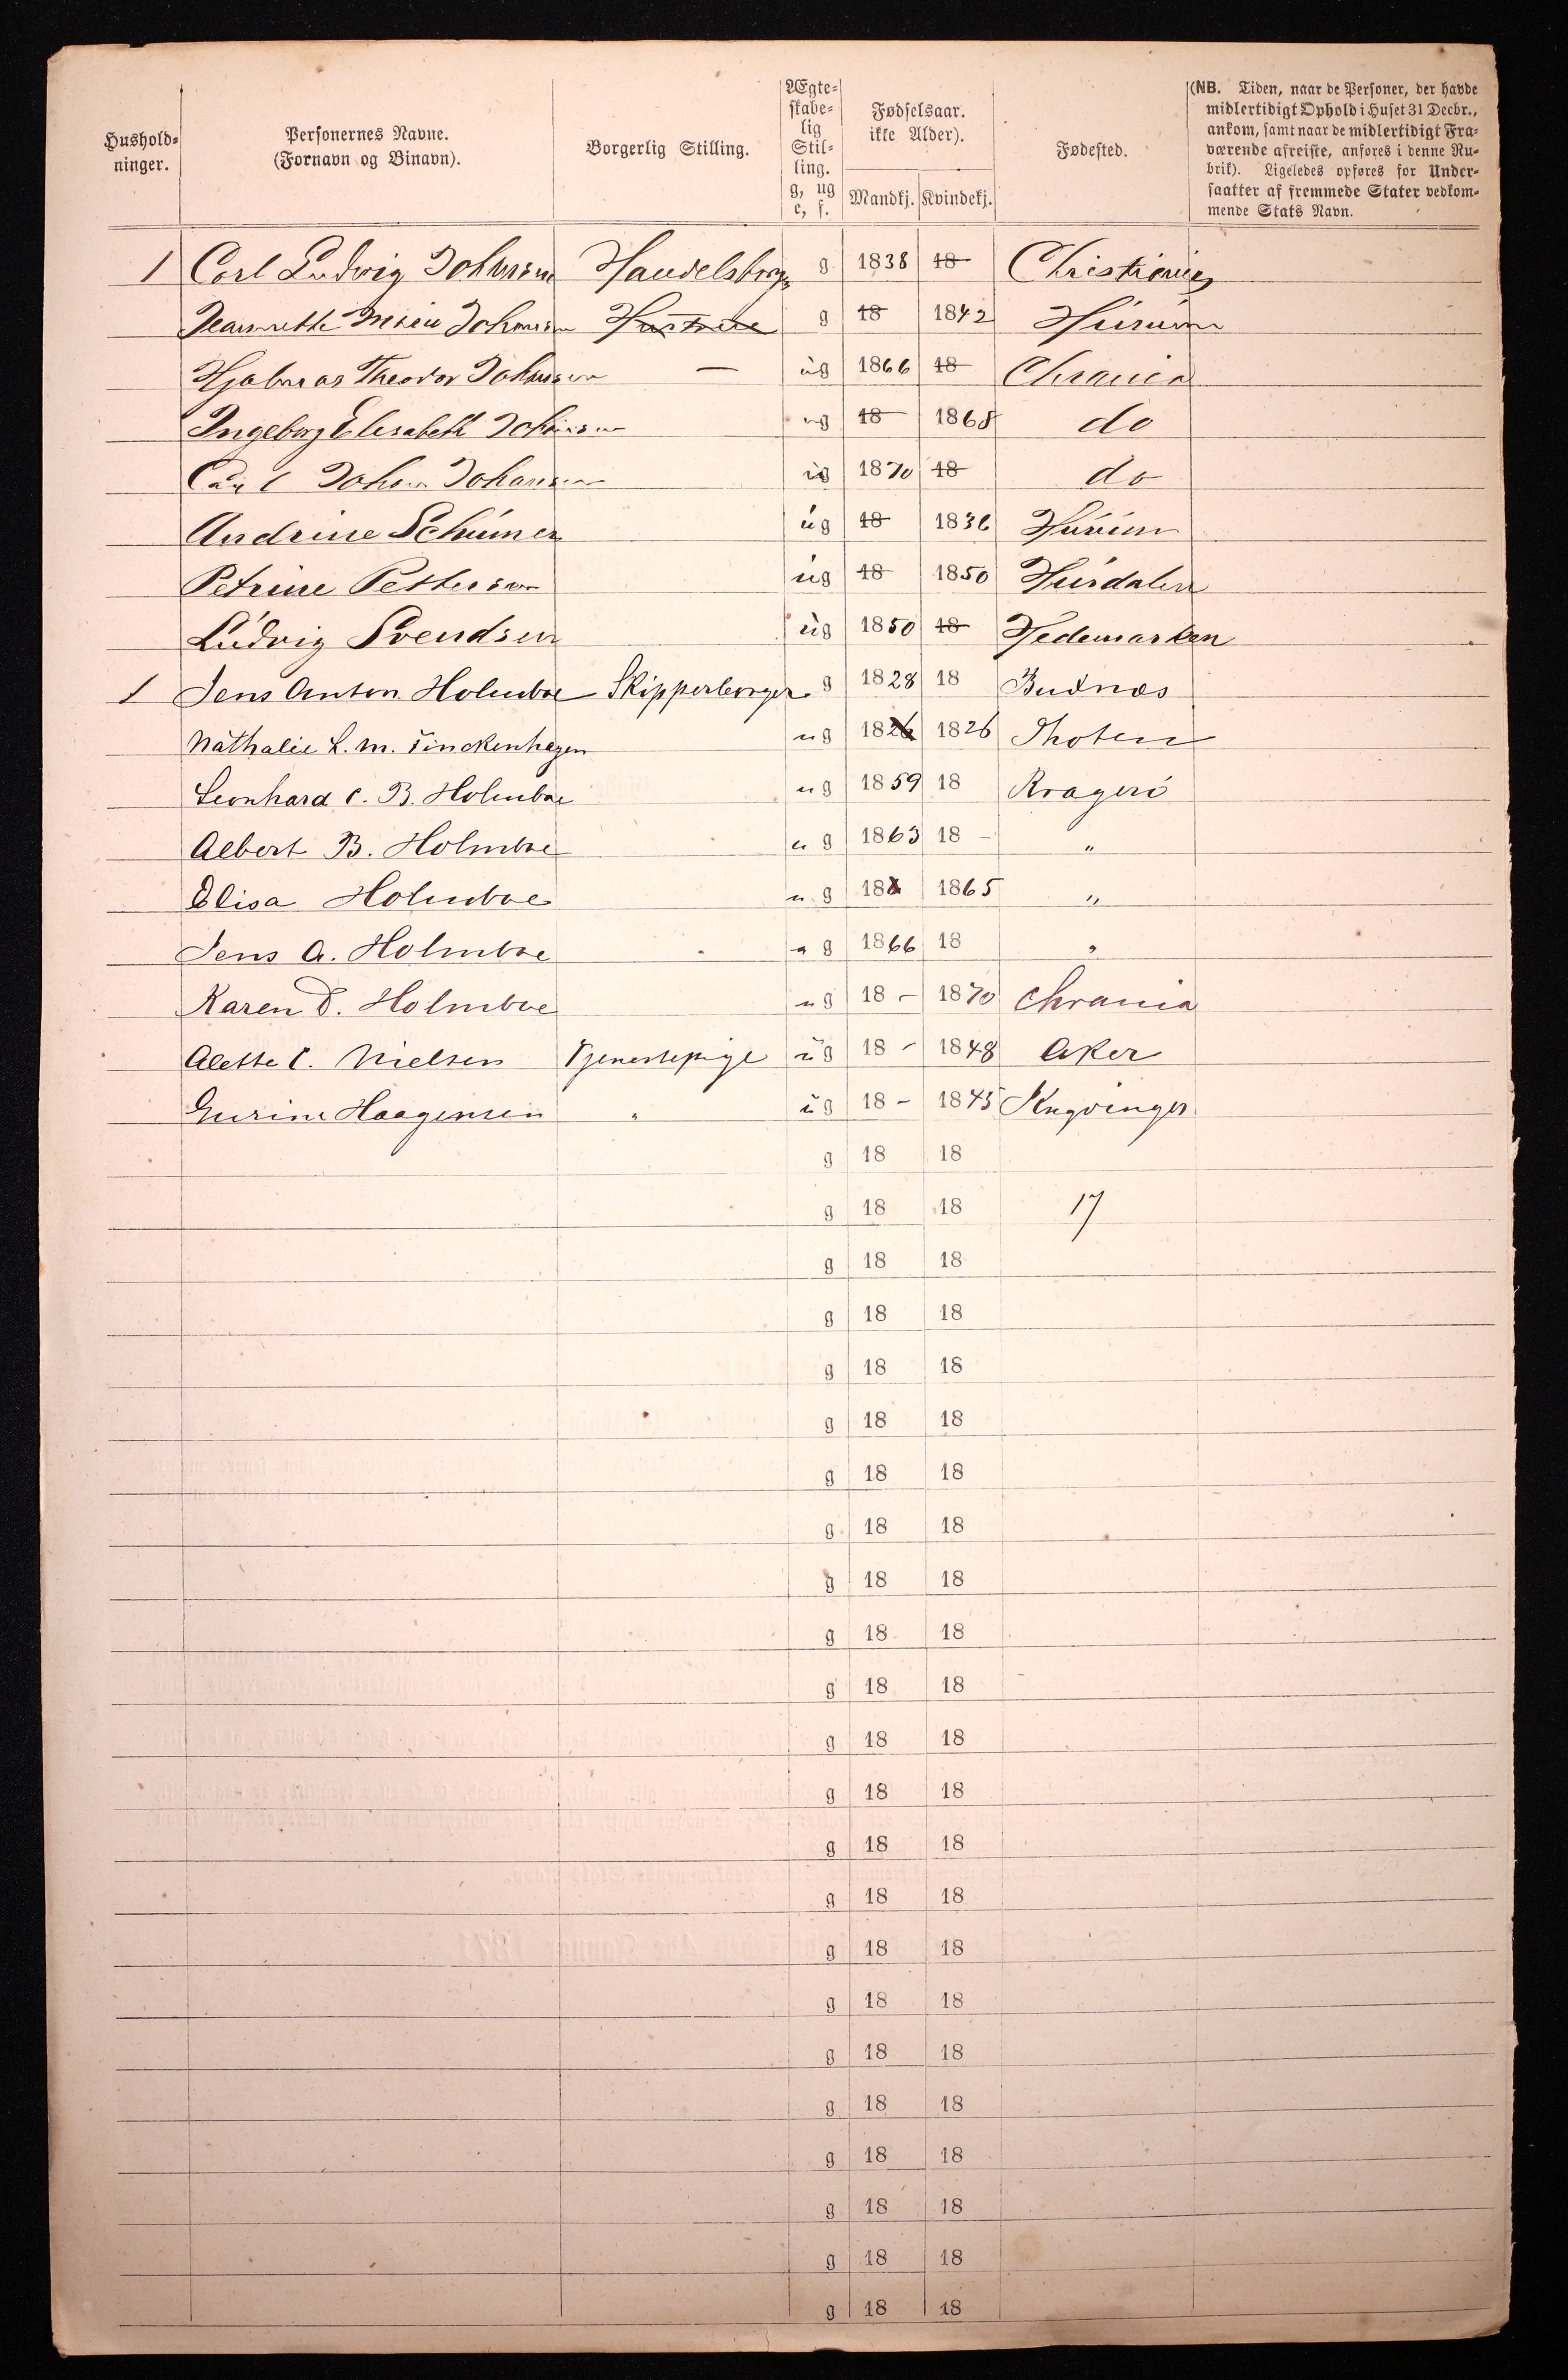 Hushold-
ninger.
Personernes Navne.
(Fornavn og Binavn).
Borgerlig Stilling.
Ægte-
skabe-
lig
Stil-
ling.
g, ug
e, f.
Fødselsaar.
ikke Alder).
Mandkj. Kvindekj.
Fødested.
(NB. Tiden, naar de Personer, der havde
midlertidigt Ophold i Huset 31 Decbr.,
ankom, samt naar de midlertidigt Fra-
værende afreiste, anføres i denne Ru-
brik). Ligeledes opføres for Under-
saatter af fremmede Stater vedkom-
mende Stats Navn.
1 Carl Ludvig Johnsen Handelsborger g 1838 18 Christiania
Johnsen Hustrue g 18 1842 Hurum
Hjalmar Theodor Johnsen — ug 1866 18 Chrania
Ingeborg Elisabeth Johnsen ug 18 1868 do
Carl Johan Johansen ug 1870 18 do
Andrine ug 18 1836 Hurum
Petrine Pettersen ug 18 1850 Hurdalen
Ludvig Svendsen ug 1850 18 Hedemarken
1 Jens Anton Holmboe Skipperborger g 1828 18
Nathalie L. M. Finckenhagen ug 1826 1826 Thoten
Leonhard C. B. Holmboe ug 1859 18 Kragerö
Albert B. Holmboe ug 1863 18 – "
Elisa Holmboe ug 18 1865 "
Jens A. Holmboe ug 1866 18 "
Karen D. Holmboe ug 18 – 1870 Chrania
Alette C. Nielsen Tjenestepige ug 18 – 1848 Aker
Gurine Haagensen " ug 18 – 1845 Kngvinger
g 18 18
g 18 18 17
g 18 18
g 18 18
g 18 18
g 18 18
g 18 18
g 18 18
g 18 18
g 18 18
g 18 18
g 18 18
g 18 18
g 18 18
g 18 18
g 18 18
g 18 18
g 18 18
g 18 18
g 18 18
g 18 18
g 18 18
g 18 18